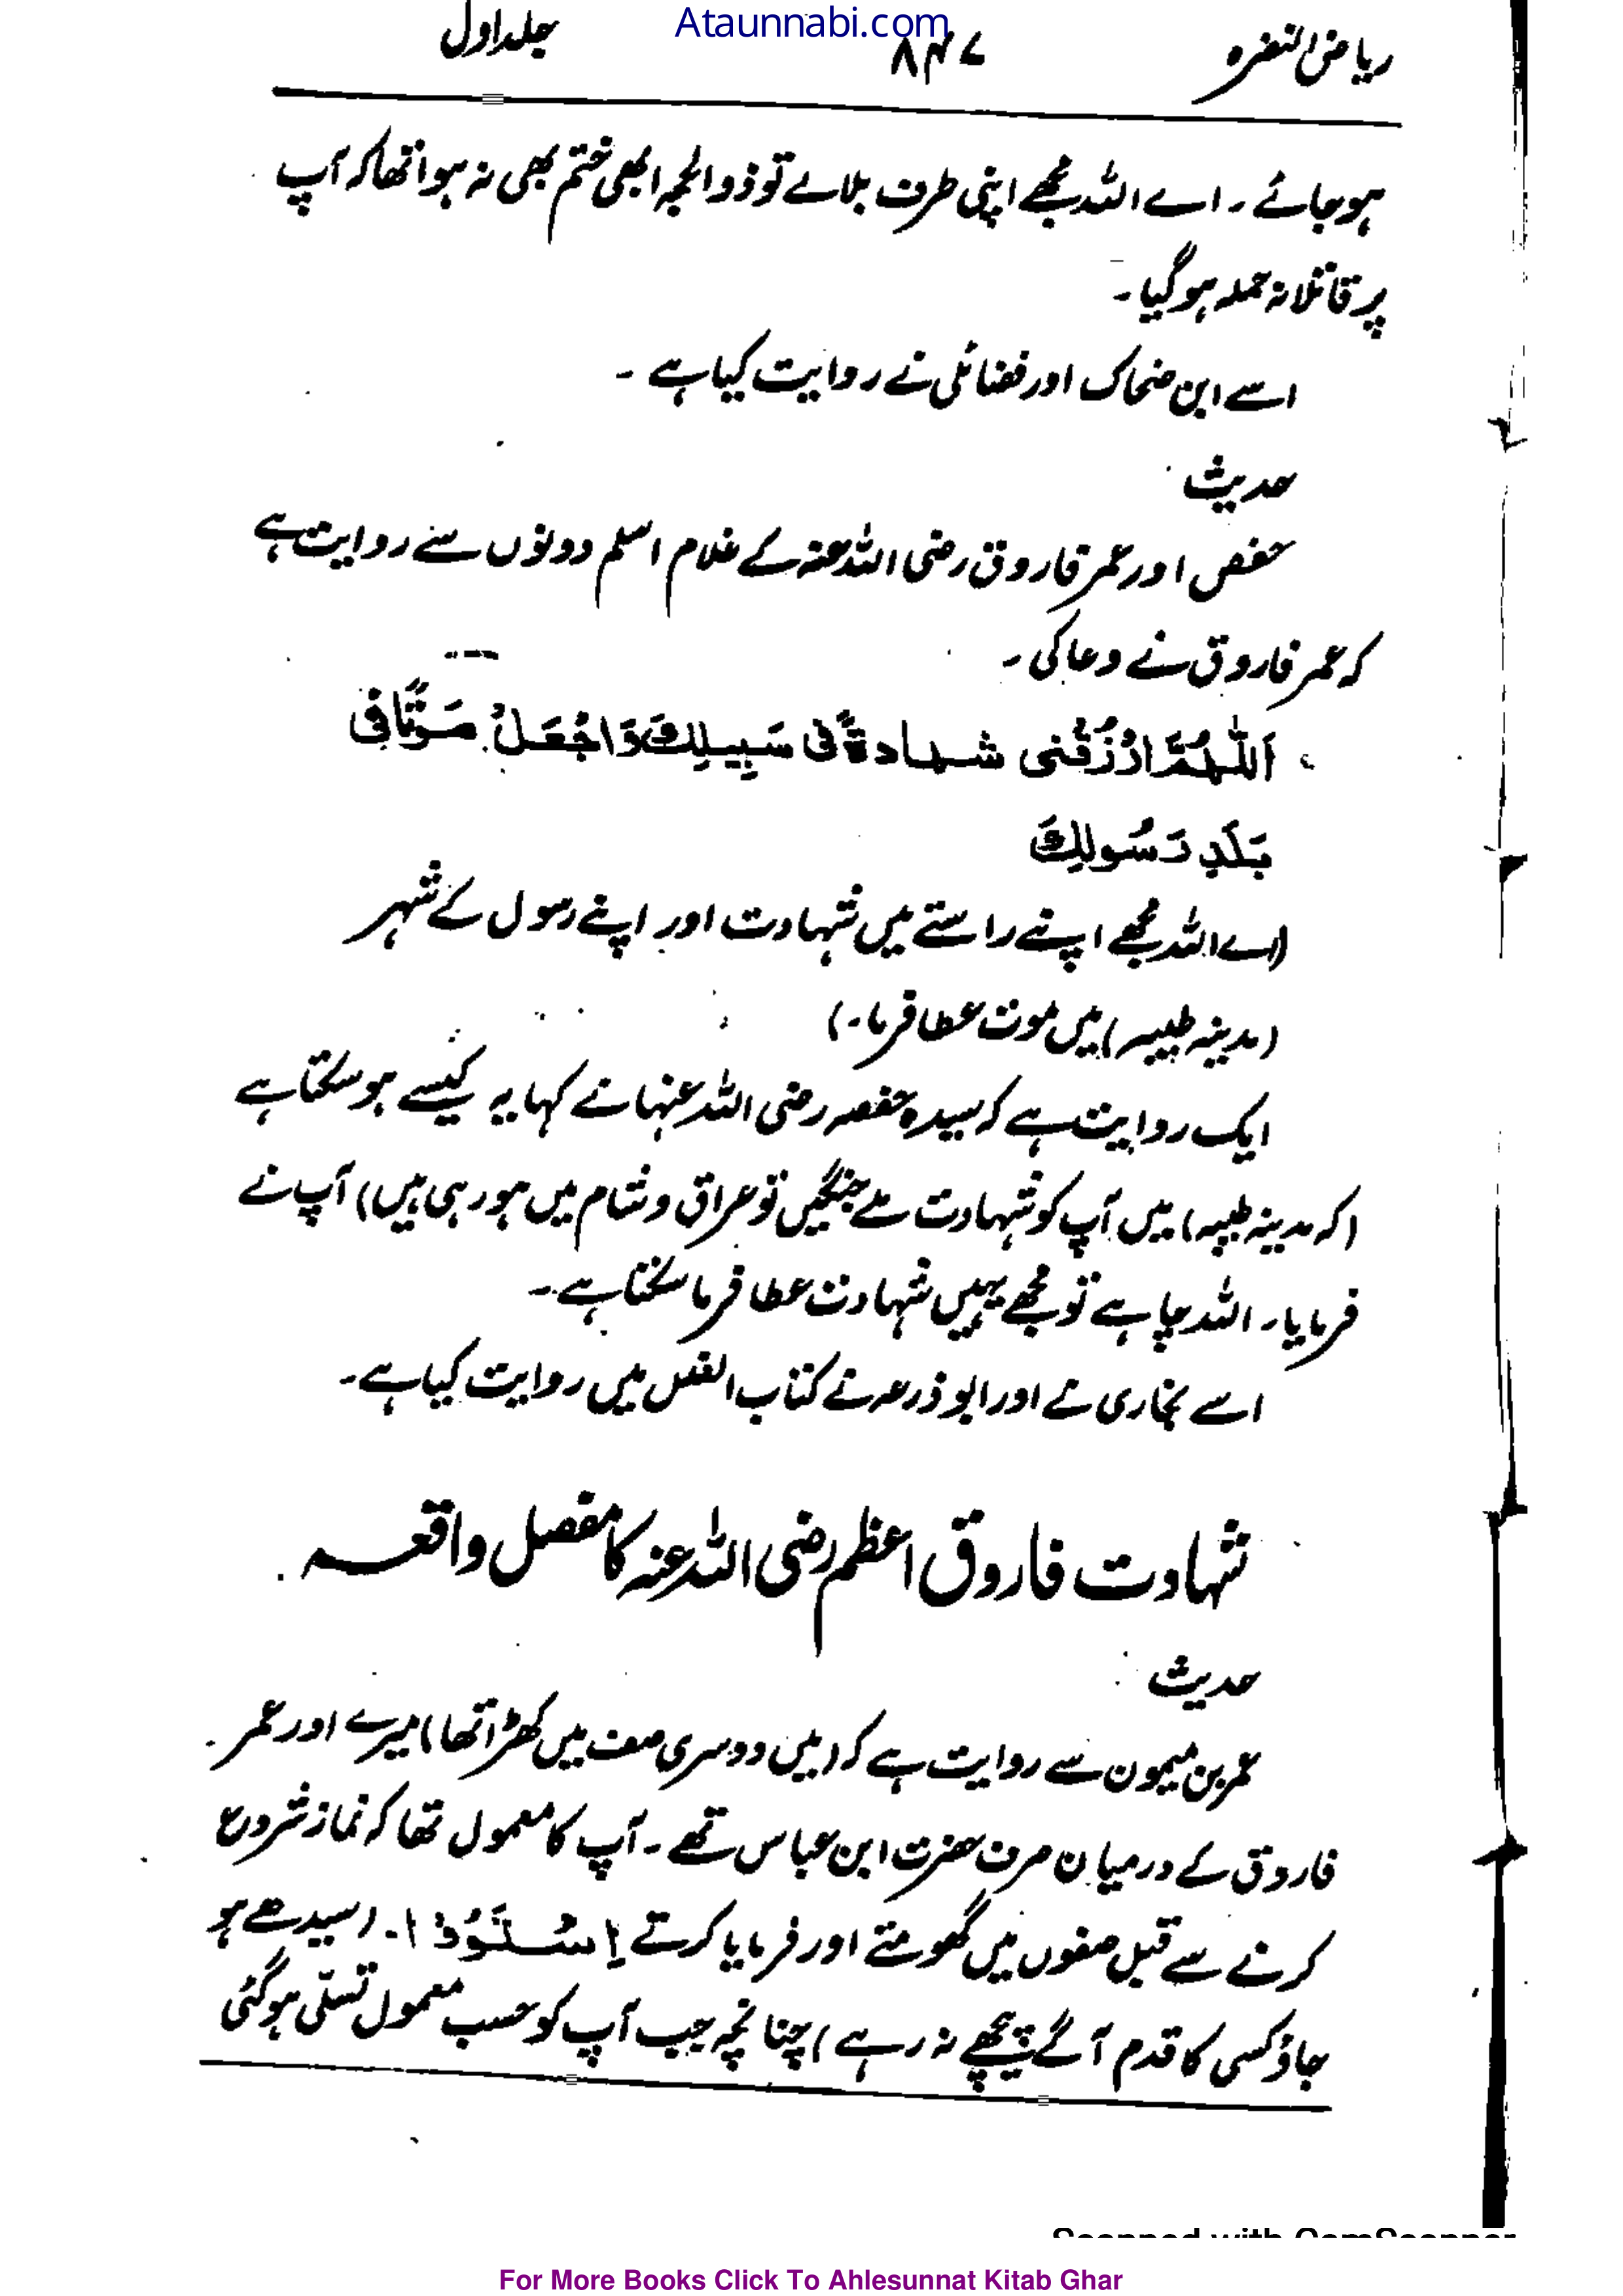 Ataunnabi.com
ریاض النضرہ ۸۴۷ جلد اول
ہو جائے۔ اے اللہ مجھے اپنی طرف بلا لے تو ذوالحجہ ابھی ختم بھی نہ ہوا تھا کہ آپ
پر قاتلانہ حملہ ہو گیا۔
اسے ابن ضحاک اور فضائلی نے روایت کیا ہے۔
حدیث
حفص اور عمر فاروق رضی اللہ عنہ کے غلام اسلم دونوں سے روایت ہے
کہ عمر فاروق نے دعا کی۔
اَللّٰهُمَّ ارْزُقْنِى شهادةً فى سَبِيلِكَ وَاجْعَلْ مَوْتًا فِى
بَلَدِ رَسُولِكَ
(اے اللہ مجھے اپنے راستے میں شہادت اور اپنے رسول کے شہر
(مدینہ طیبہ) میں موت عطا فرما۔)
ایک روایت ہے کہ سیدہ حفصہ رضی اللہ عنہا نے کہا یہ کیسے ہو سکتا ہے
(کہ مدینہ طیبہ) میں آپ کو شہادت ملے جنگیں تو عراق و شام میں ہو رہی ہیں) آپ نے
فرمایا۔ اللہ چاہے تو مجھے یہیں شہادت عطا فرما سکتا ہے۔
اسے بخاری نے اور ابو ذرعہ نے کتاب العلل میں روایت کیا ہے۔
شہادت فاروق اعظم رضی اللہ عنہ کا مفصل واقعہ
حدیث
عمر بن میمون سے روایت ہے کہ (میں دوسری صف میں کھڑا تھا) میرے اور عمر
فاروق کے درمیان صرف حضرت ابن عباس تھے۔ آپ کا معمول تھا کہ نماز شروع
کرنے سے قبل صفوں میں گھومتے اور فرمایا کرتے اِسْتَوُوْا۔ (سیدھے ہو
جاؤ کسی کا قدم آگے پیچھے نہ رہے) چنانچہ جب آپ کو حسب معمول تسلی ہو گئی
Scanned with CamScanner
For More Books Click To Ahlesunnat Kitab Ghar